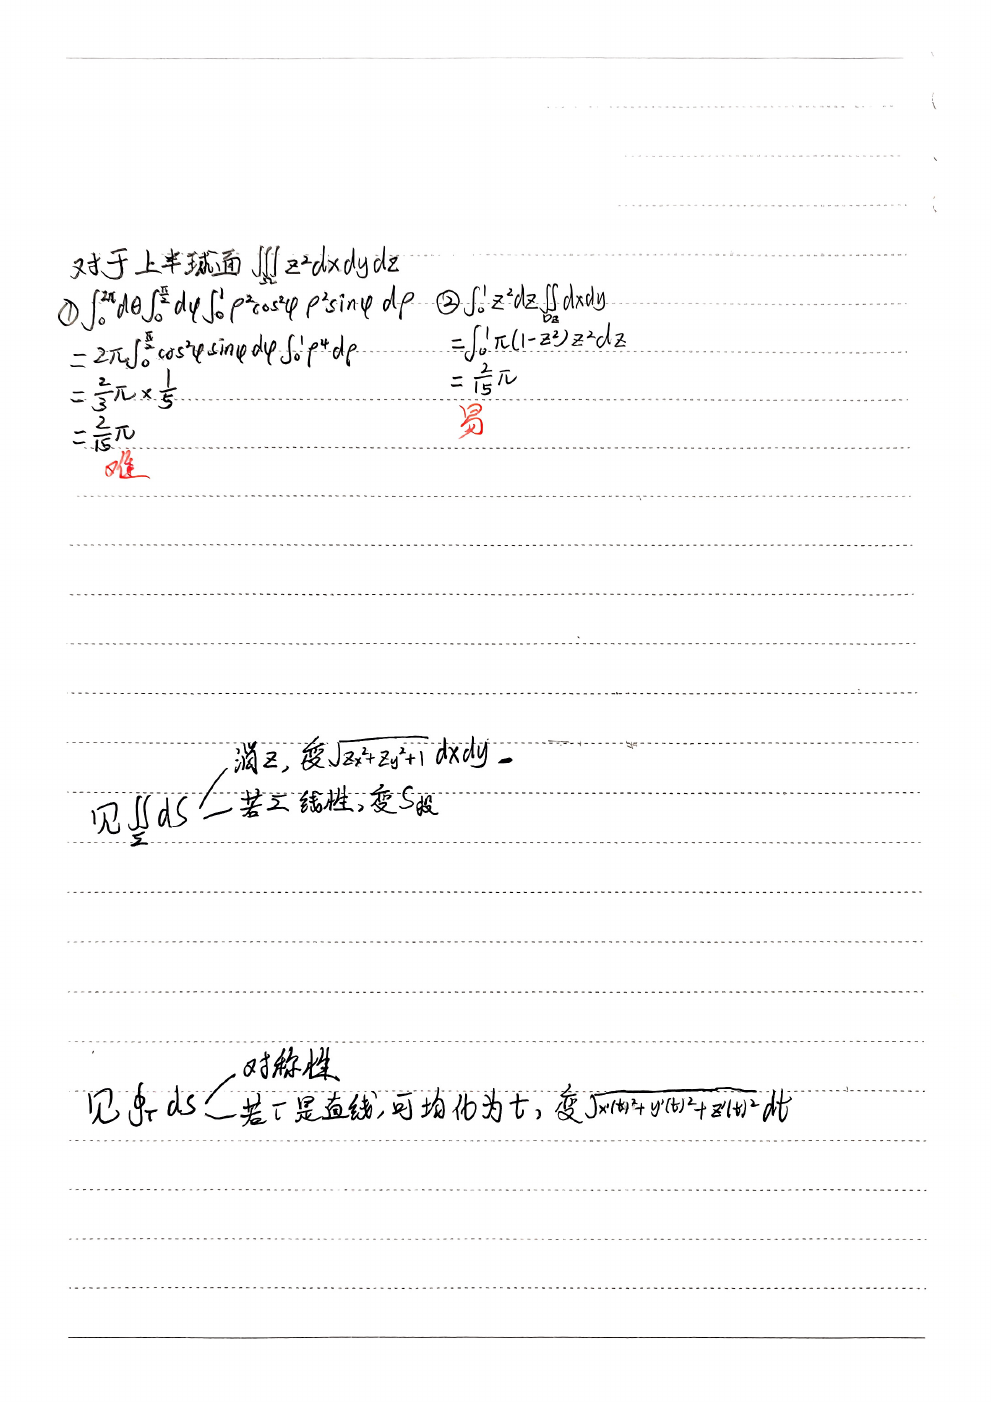 对于上半球面 ∭_Ω z²dxdydz
① ∫₀^{2π}dθ∫₀^{π/2}dφ∫₀¹ρ²cos²φ ρ²sinφ dρ
= 2π∫₀^{π/2}cos²φ sinφ dφ∫₀¹ρ⁴dρ
= 2/3 π × 1/5
= 2/15 π
难
② ∫₀¹z²dz∬_{Dz}dxdy
= ∫₀¹π(1-z²)z²dz
= 2/15 π
易
见∬_Σ dS
消z, 变√(zx²+zy²+1) dxdy.
若Σ线性, 变S投
见∮_τ ds
对称性
若τ是直线, 可均化为t, 变√(x'(t)²+y'(t)²+z'(t)²) dt